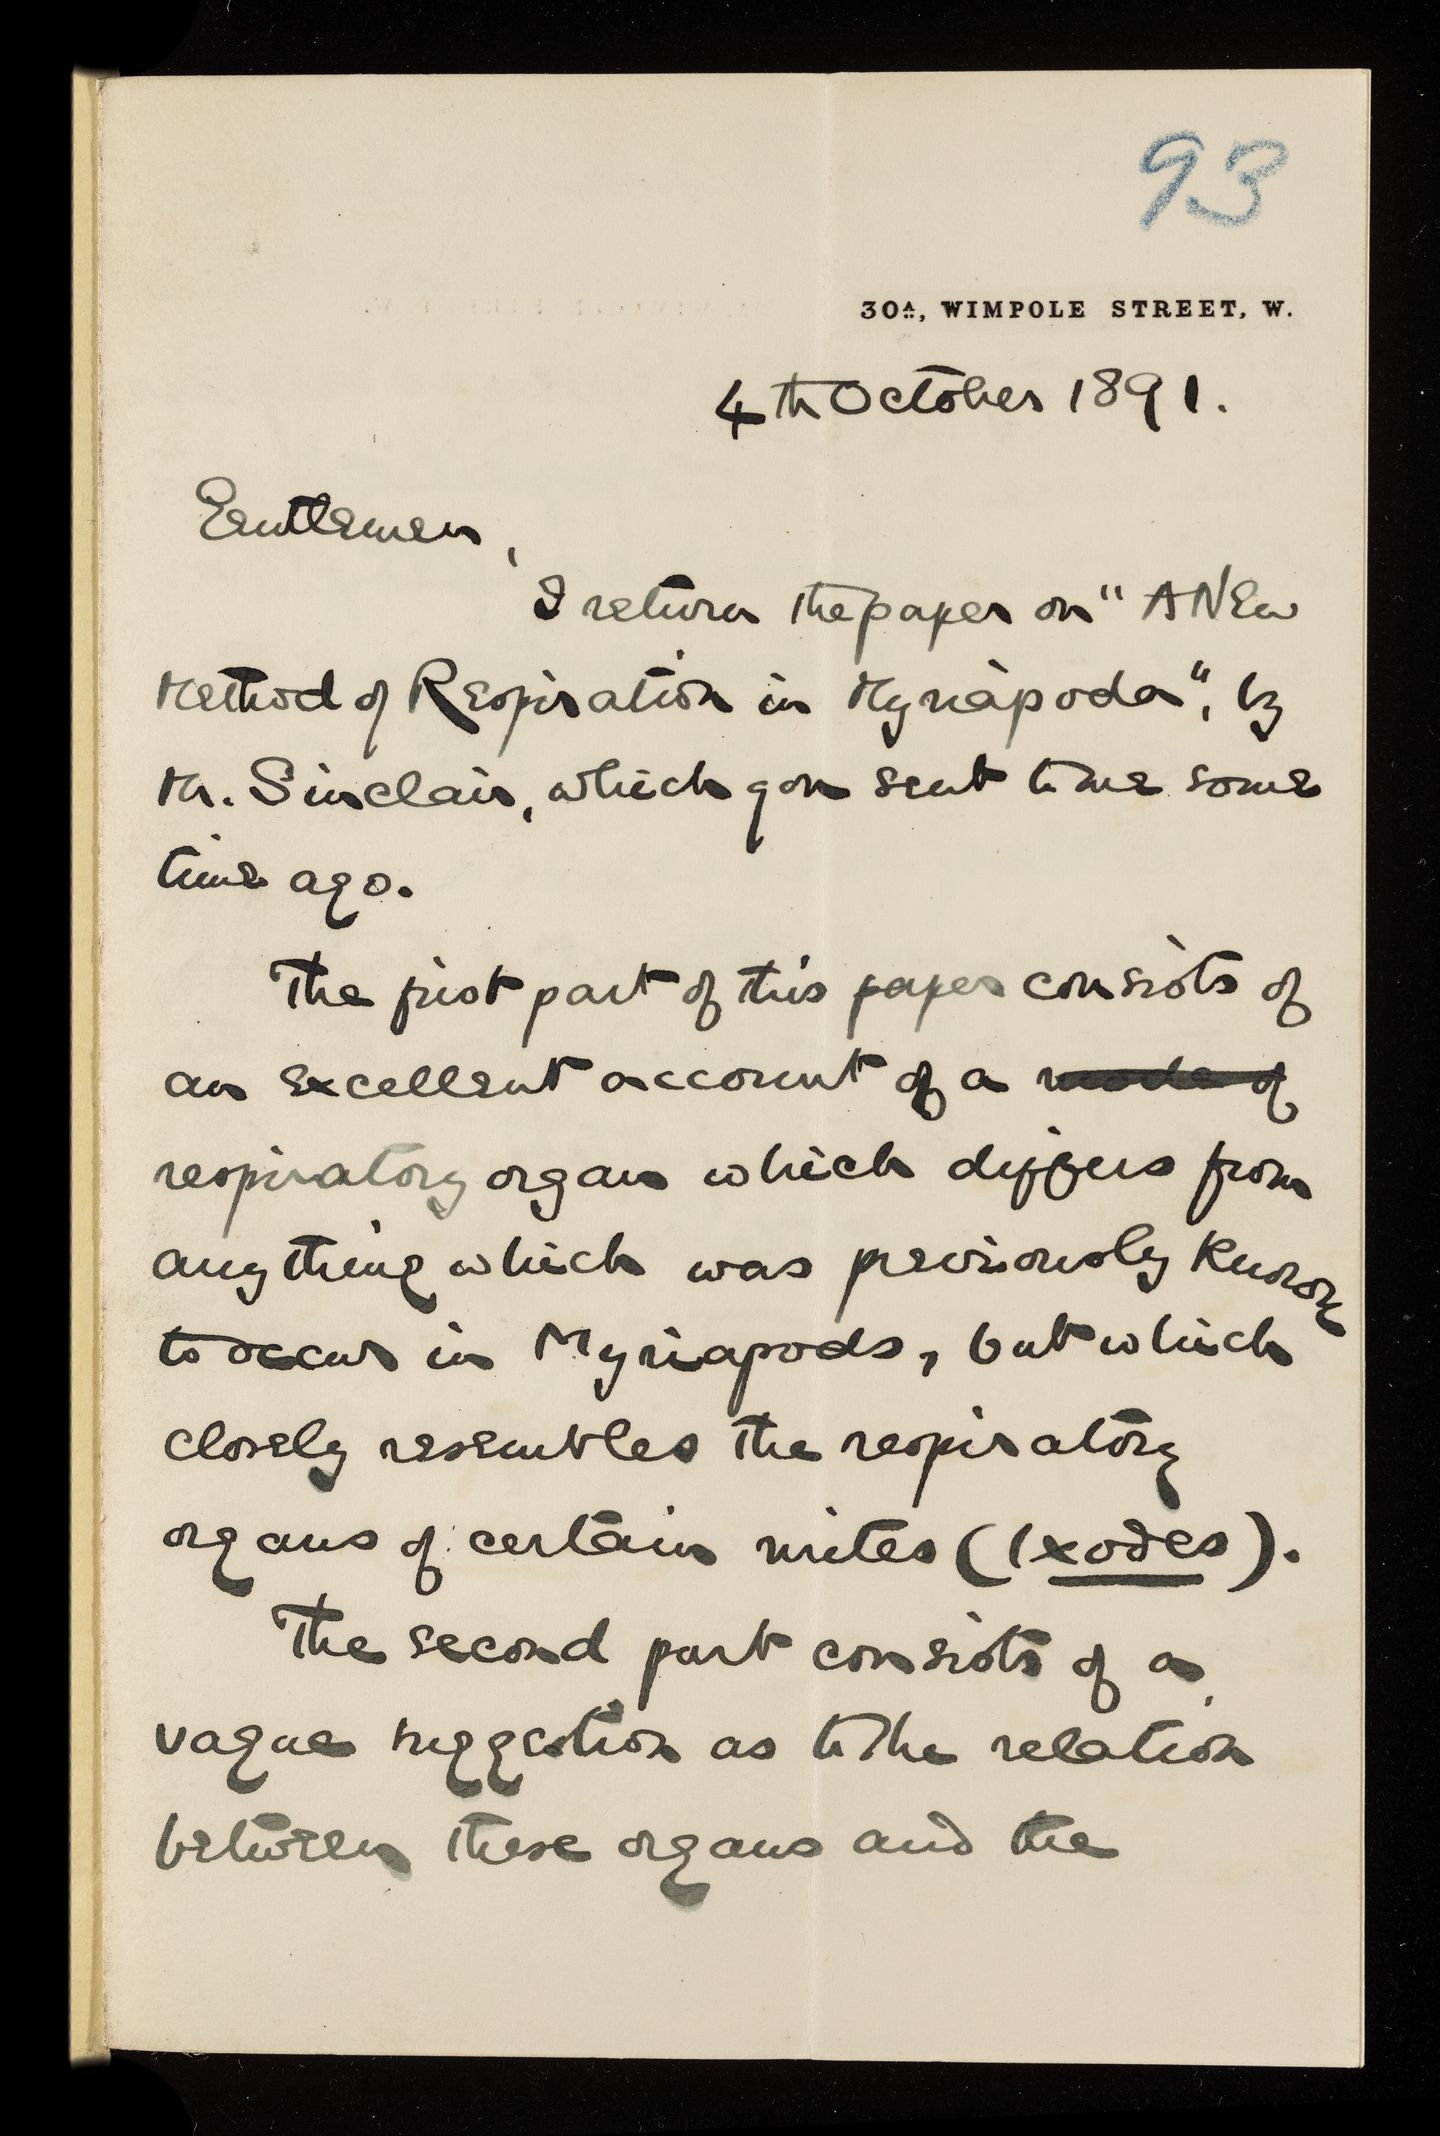 93
30A, WIMPOLE STREET, W.
4th October 1891.
Gentlemen,
I return the paper on "A New
Method of Respiration in Myriapoda", by
Mr. Sinclair, which you sent to me some
time ago.
The first part of this paper consists of
an excellent account of a mode of
respiratory organ which differs from
anything which was previously known
to occur in Myriapods, but which
closely resembles the respiratory
organs of certain mites (Ixodes).
The second part consists of a
vague suggestion as to the relation
between these organs and the